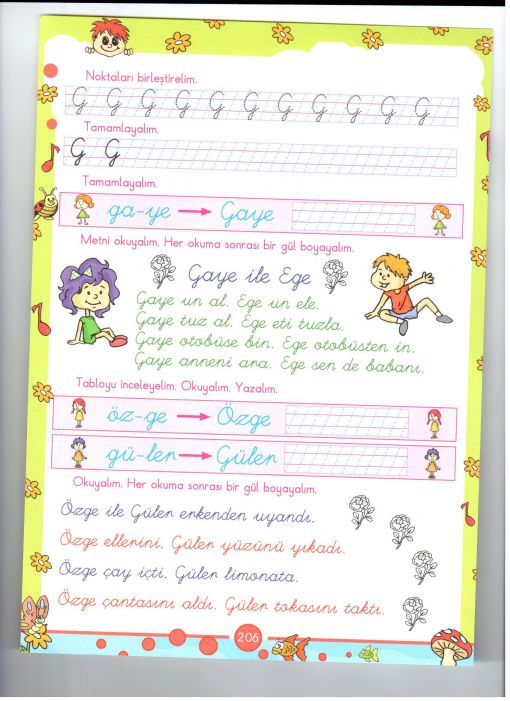 Noktaları birleştirelim.
G G G G G G G G G G G
Tamamlayalım.
G G
Tamamlayalım.
ga-ye → Gaye
Metni okuyalım. Her okuma sonrası bir gül boyayalım.
Gaye ile Ege
Gaye un al. Ege un ele.
Gaye tuz al. Ege eti tuzla.
Gaye otobüse bin. Ege otobüsten in.
Gaye anneni ara. Ege sen de babanı.
Tabloyu inceleyelim. Okuyalım. Yazalım.
öz-ge → Özge
gü-len → Gülen
Okuyalım. Her okuma sonrası bir gül boyayalım.
Özge ile Gülen erkenden uyandı.
Özge ellerini, Gülen yüzünü yıkadı.
Özge çay içti. Gülen limonata.
Özge çantasını aldı. Gülen tokasını taktı.
206